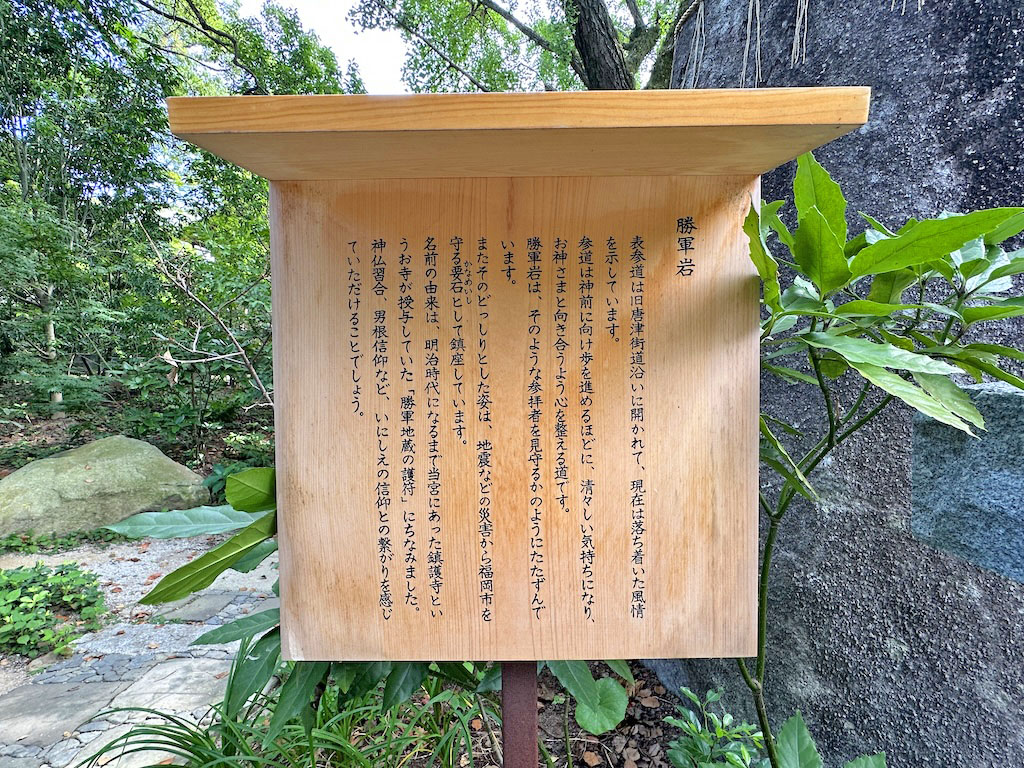 勝軍岩
表参道は旧唐津街道沿いに開かれて、現在は落ち着いた風情
を示しています。
参道は神前に向け歩を進めるほどに、清々しい気持ちになり、
お神さまと向き合うよう心を整える道です。
勝軍岩は、そのような参拝者を見守るかのようにたたずんで
います。
またそのどっしりとした姿は、地震などの災害から福岡市を
守る要石として鎮座しています。
かなめいし
名前の由来は、明治時代になるまで当宮にあった鎮護寺とい
うお寺が授与していた「勝軍地蔵の護符」にちなみました。
神仏習合、男根信仰など、いにしえの信仰との繋がりを感じ
ていただけることでしょう。